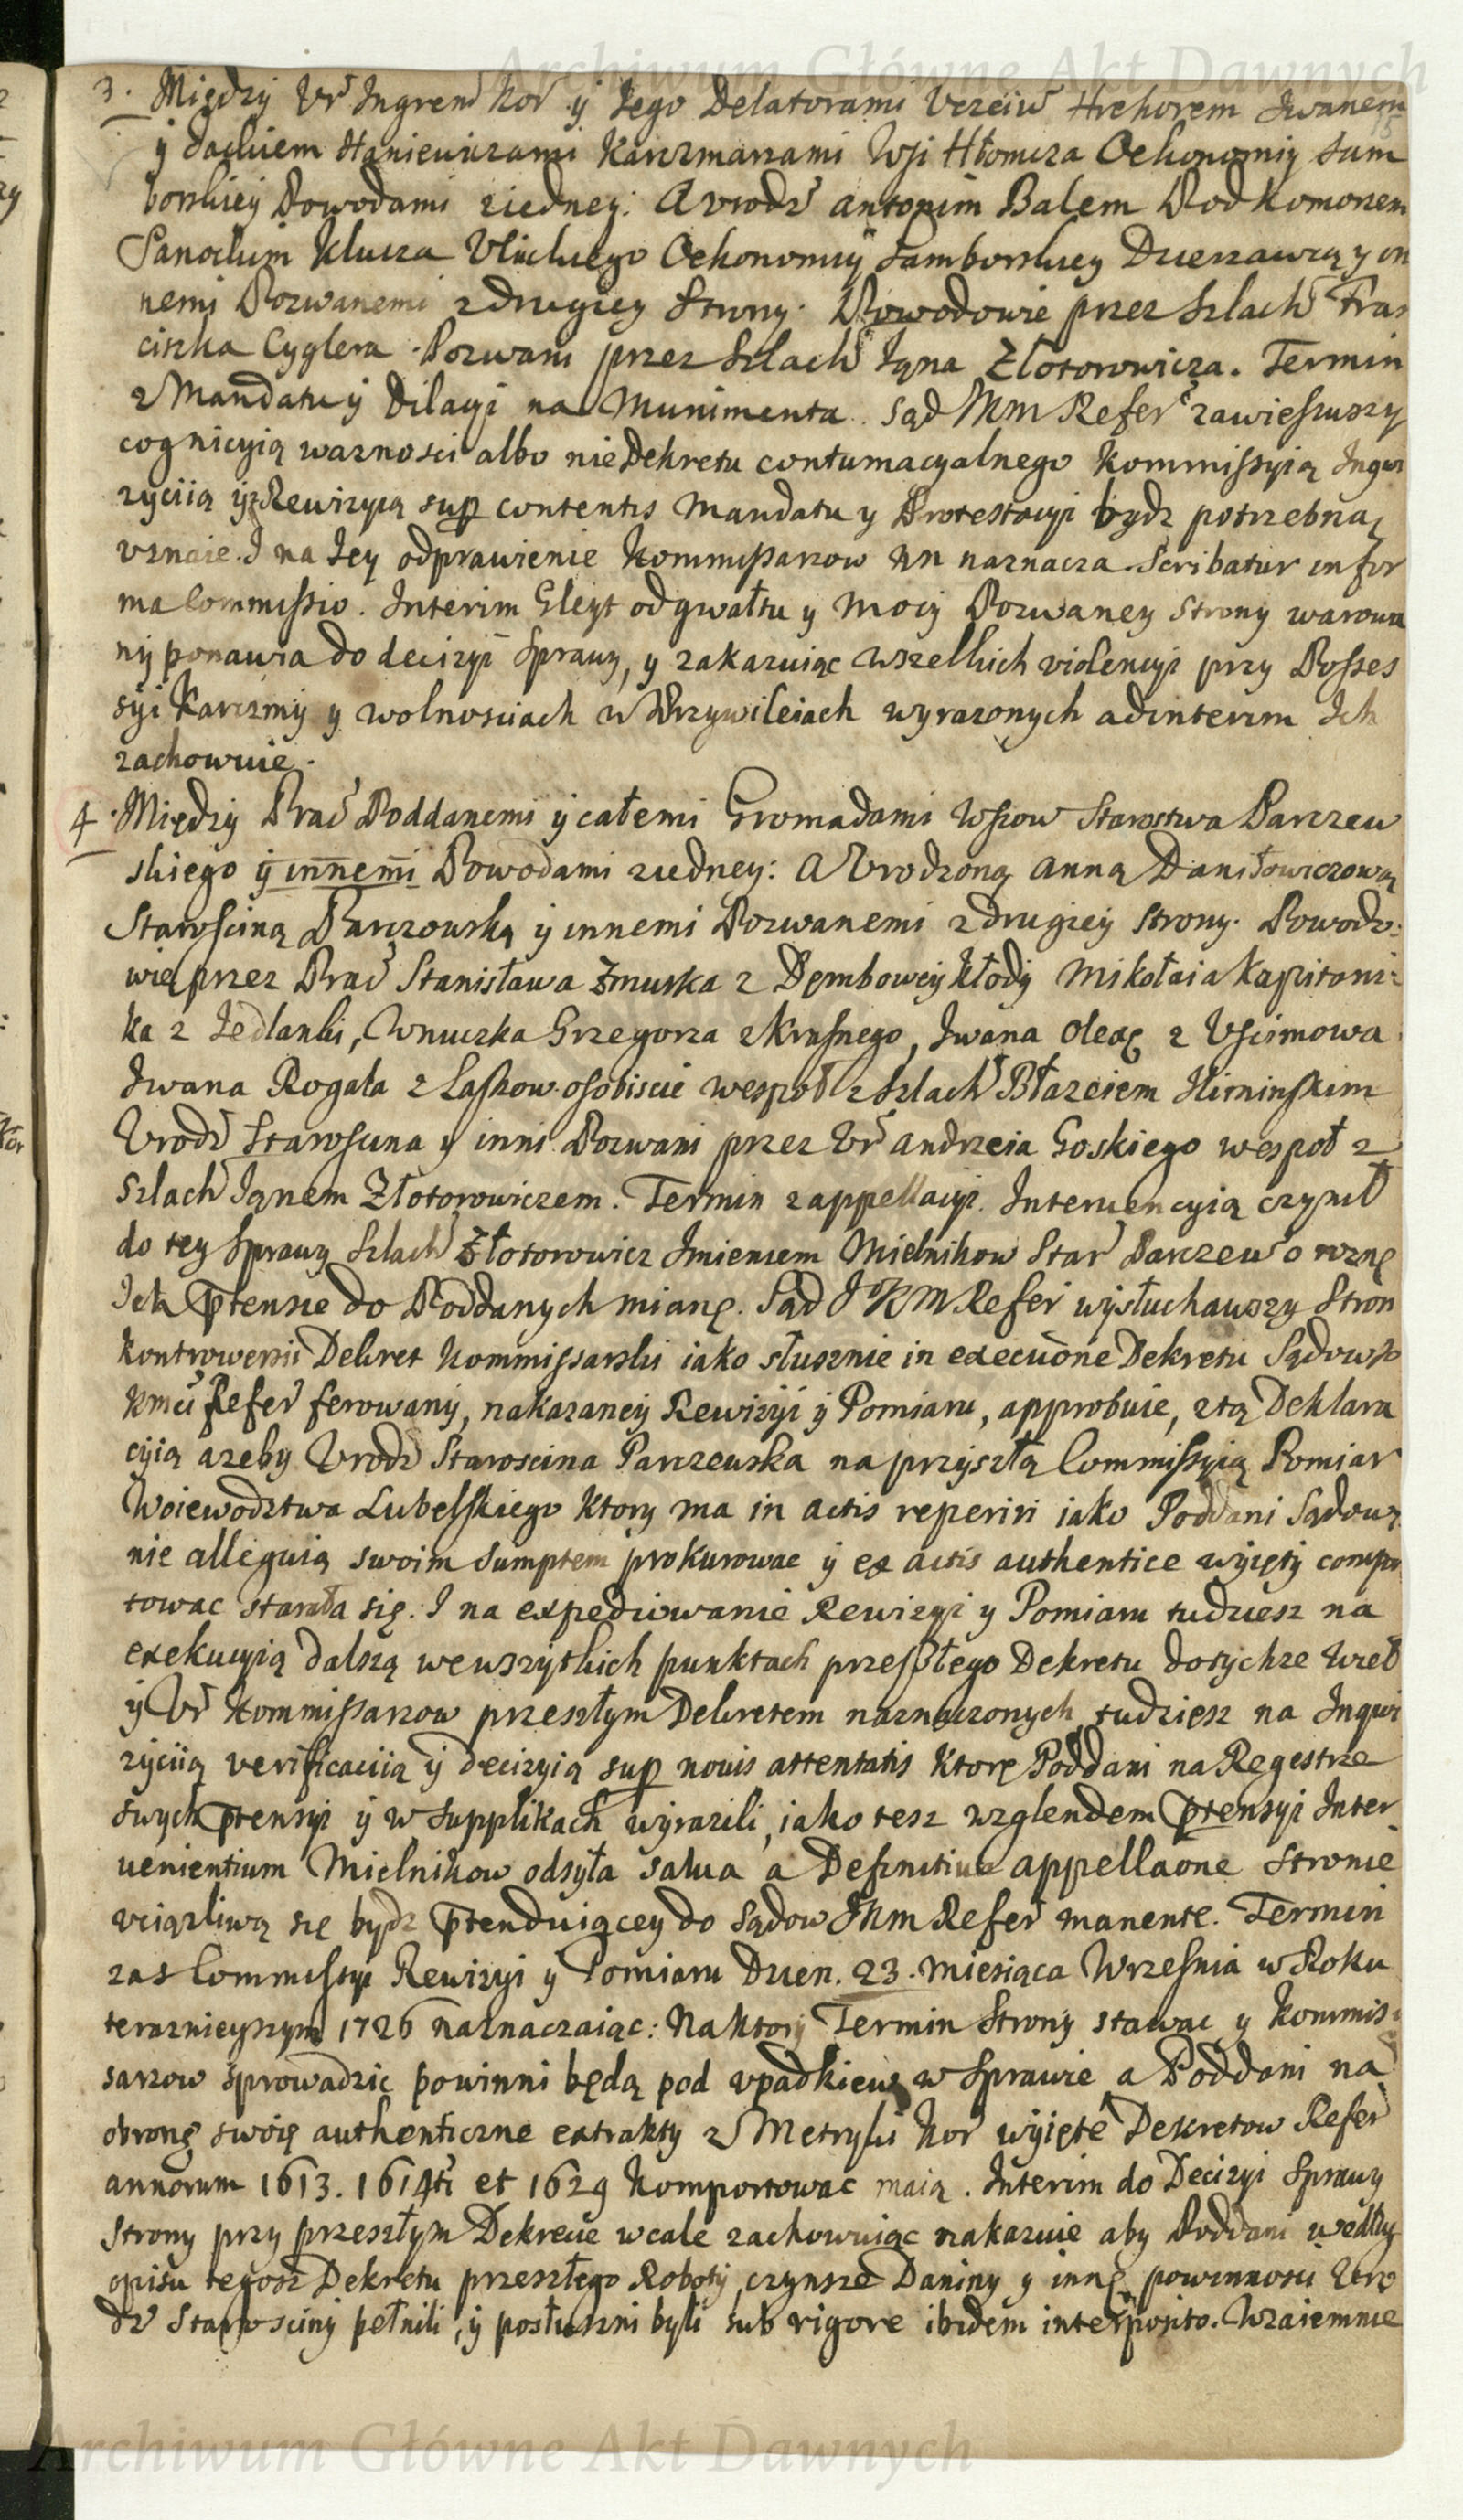 Archiwum Główne Akt Dawnych
3. Między Ur Ingreni Kor y Jego Delatorami Uczciw Hrehorem Iwanem
y Jackiem Haniewiczami Karczmarzami Wsi Hłomcza Oekonomiy Sam
borskiey Powodami z iedney: A Urodz Antonim Balem Podkomorzem
Sanockim Klucza Ulickiego Oekonomiy Samborskiey Dzierzawcą y in
nemi Pozwanemi z drugiey Strony. Powodowie przez Szlach Fran
ciszka Cyglera. Pozwani przez Szlach Igna Złotorowicza. Termin
z Mandatu y Dilacyi na Munimenta. Sąd JKM Refer zawiesiwszy
cognicyią waznosci albo nie Dekretu contumacyalnego Kommissyią Inqwi
zyciią y Rewizyią sup contentis Mandatu y Protestacyi bydz potrzebną
uznaie. I na Jey odprawienie Kommissarzow NN naznacza. Scribatur in for
ma Commissio. Interim Gleyt od gwałtu y Mocy Pozwaney Strony warowa
ny ponawia do decizyi Sprawy, y zakazuiąc wszelkich violencyi przy Posses
syi Karczmy y wolnosciach w Przywileiach wyrazonych ad interim Ich
zachowuie.
4. Między Prac Poddanemi y całemi Gromadami Wsiow Starostwa Parczew
skiego y innemi Powodami z iedney: A Urodzoną Anną Daniłowiczową
Starosciną Parczowską y innemi Pozwanemi z drugiey Strony. Powodo:
wie przez Prac Stanisława Zmuska z Dembowey Kłody Mikołaia Kapitani:
ka z Jedlanki, Wnuczka Grzegorza z Krasnego, Iwana Olexę z Uscimowa
Iwana Rogala z Laskow osobiscie wespoł z Szlach Błazeiem
Urodz Staroscina y inni Pozwani przez Ur Andrzeia Goskiego wespoł z
Szlach Ignem Złotorowiczem. Termin z appellacyi. Interuencyią czynił
do tey Sprawy Szlach Złotorowicz Imieniem Mielnikow Star Parczew o rznę
Ich ptensie do Poddanych mianę. Sąd JKM Refer wysłuchawszy Stron
Kontrowersii Dekret Kommissarski iako słusznie in executōne Dekretu Sądow Jo
KMci Refer ferowany, nakazaney Rewizyi y Pomiaru, approbuie, z tą Deklara
cyią azeby Urodz Staroscina Parczewska na przyszłą Commissyią Pomiar
Woiewodztwa Lubelskiego Ktory ma in actis reperiri iako Poddani Sądow
nie alleguią swoim sumptem prokurowac y ex actis authentice wyięty compor
towac starała się. I na expediowanie Rewizyi y Pomiaru tudziesz na
exekucyią dalszą we wszytkich punktach przeszłego Dekretu dotychze Wiel
y Ur Kommissarzow przeszłym Dekretem naznaczonych tudziesz na Inqwi
zyciią verificaciią y decizyią sup nouis attentatis Ktorę Poddani na Regestrze
swych ptensyi y w supplikach wyrazili, iako tesz wzglendem ptensyi Inter
uenientium Mielnikow odsyła salua a Definitiua appellaōne Stronie
uciązliwą się bydz ptenduiącey do Sądow JKM Refer manente. Termin
zas Commissyi Rewizyi y Pomiaru Dzien. 23. Miesiąca Wrzesnia w Roku
teraznieyszym 1726 naznaczaiąc: Na ktory Termin Strony stawac y Kommis:
sarzow sprowadzic powinni będą pod upadkiem w Sprawie a Poddani na
obronę swoię authenticzne extrakty z Metryki Kor wyięte Dekretow Refer
annorum 1613. 1614ti et 1629 Komportowac maią. Interim do Decizyi Sprawy
Strony przy przeszłym Dekrecie wcale zachowuiąc nakazuie aby Poddani według
opisu tegosz Dekretu przeszłego Roboty, czynsze Daniny y innę powinnosci Uro
dz Starosciny pełnili, y posłuszni byli sub rigore ibidem interposito. Wzaiemnie
Archiwum Główne Akt Dawnych